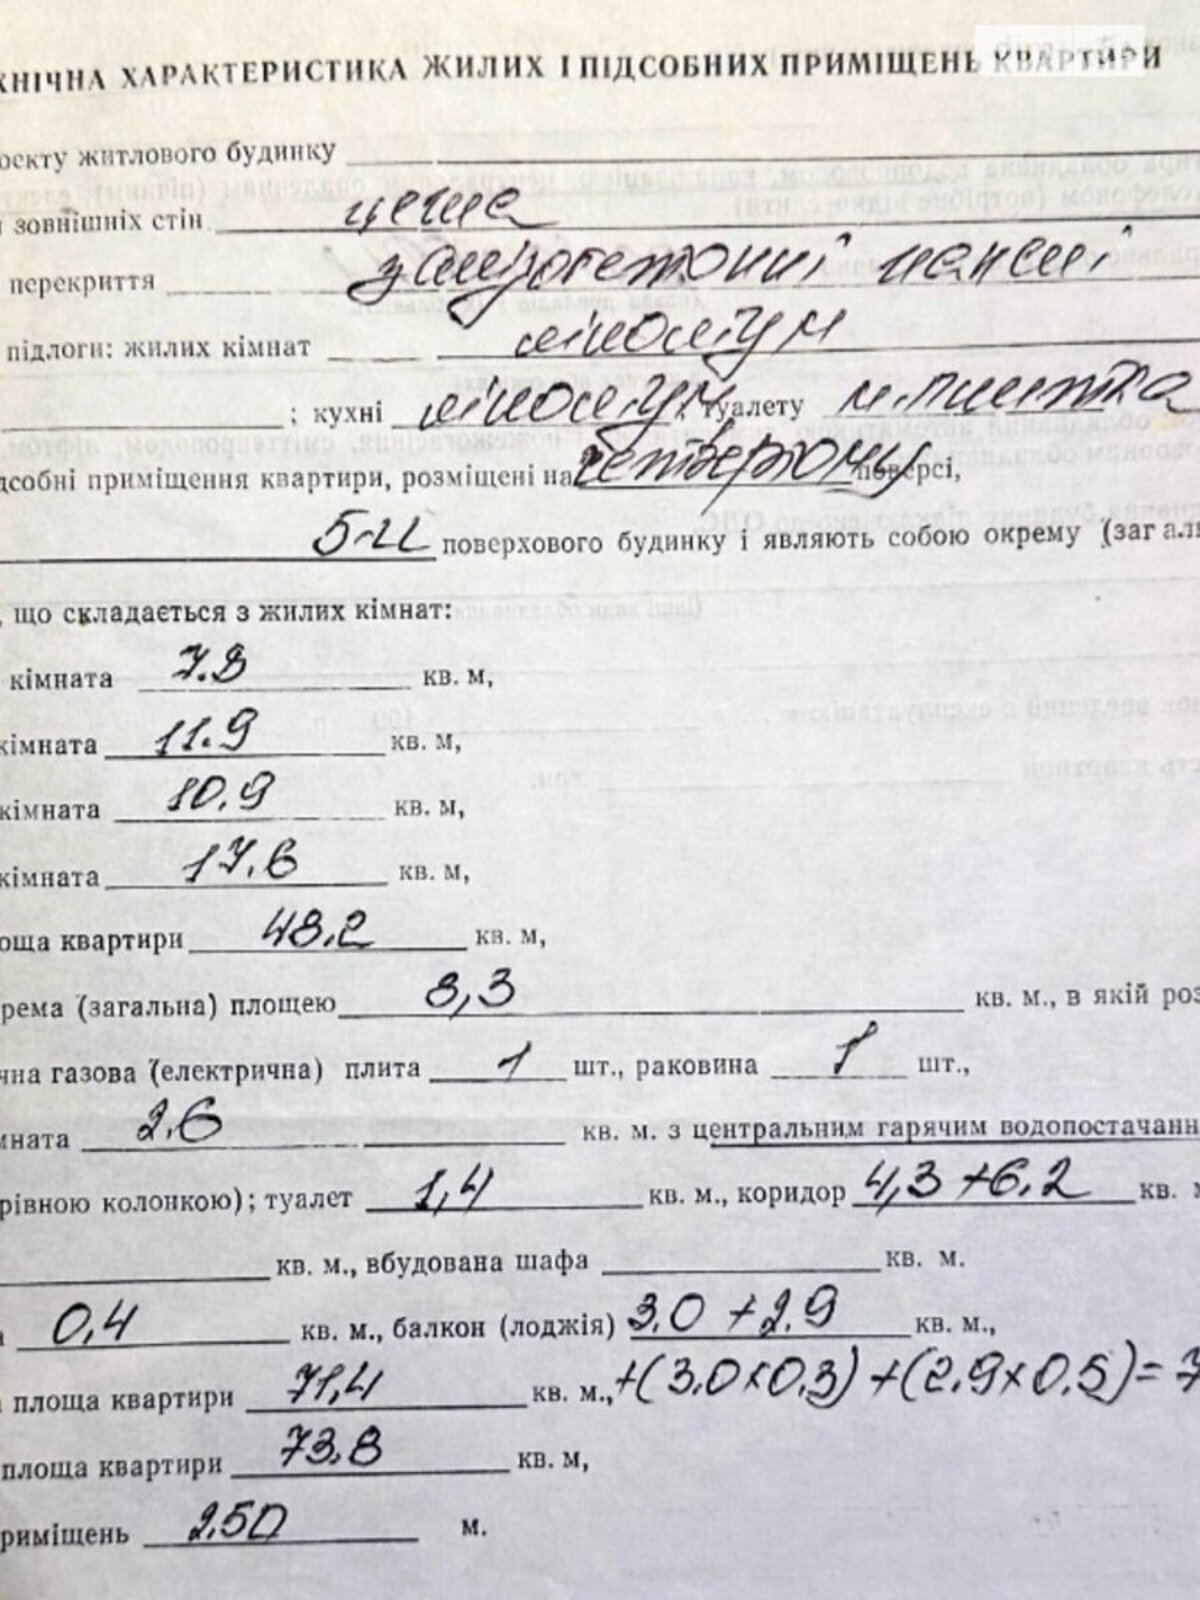 ХНІЧНА ХАРАКТЕРИСТИКА ЖИЛИХ І ПІДСОБНИХ ПРИМІЩЕНЬ КВАРТИРИ
оекту житлового будинку
зовнішніх стін цегла
перекриття залізобетонні панелі
підлоги: жилих кімнат лінолеум
; кухні лінолеум, туалету м.плитка
дсобні приміщення квартири, розміщені на четвертому поверсі,
5-и поверхового будинку і являють собою окрему (загаль
, що складається з жилих кімнат:
кімната 7.8 кв. м,
кімната 11.9 кв. м,
кімната 10.9 кв. м,
кімната 17.6 кв. м,
оща квартири 48.2 кв. м,
рема (загальна) площею 8,3 кв. м., в якій роз
чна газова (електрична) плита 1 шт., раковина 1 шт.,
мната 2.6 кв. м. з центральним гарячим водопостачанн
рівною колонкою); туалет 1,4 кв. м., коридор 4,3 +6,2 кв. м
кв. м., вбудована шафа кв. м.
0,4 кв. м., балкон (лоджія) 3.0 +2.9 кв. м.,
площа квартири 71,4 кв. м., +(3.0×0.3) +(2.9×0.5)= 7
площа квартири 73.8 кв. м,
риміщень 2.50 м.